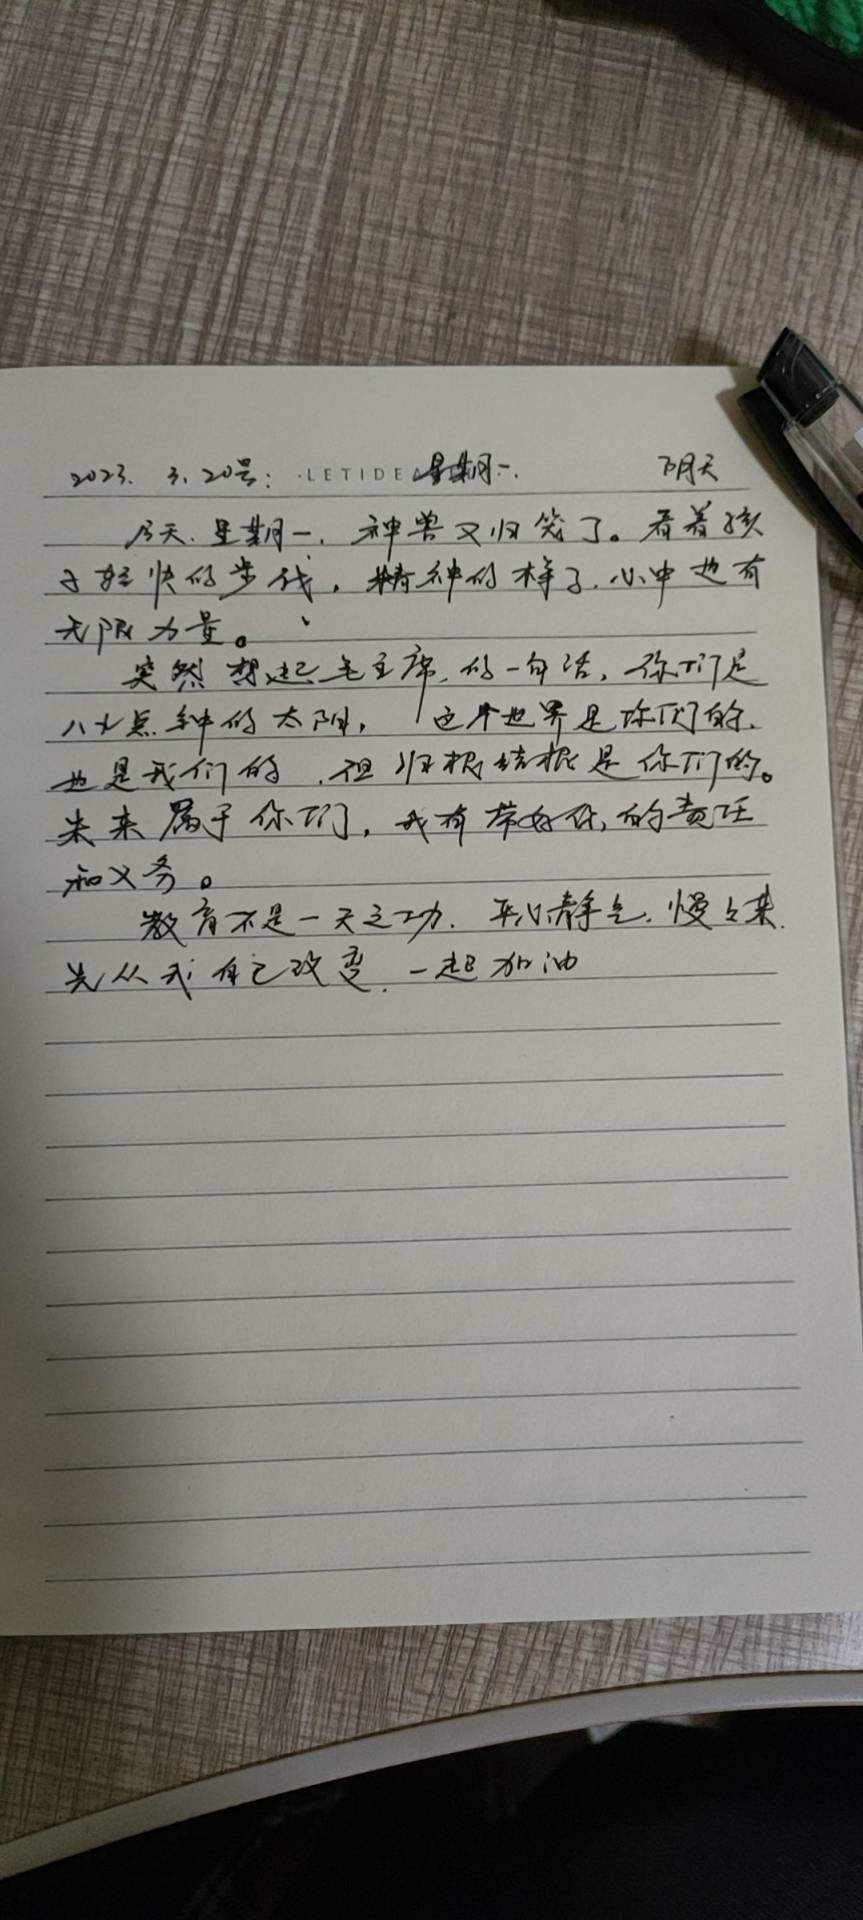 2023. 3. 20号: ·LETIDEA 星期一. 阴天
今天.星期一.神兽又归笼了。看着孩
子轻快的步伐,精神的样子.心中也有
无限力量。
突然想起毛主席.的一句话,你们是
八九点钟的太阳,这个世界是你们的.
也是我们的.但归根结根是你们的。
未来属于你们,我有带好你,的责任
和义务。
教育不是一天之功.平心静气.慢々来.
先从我自己改变.一起加油